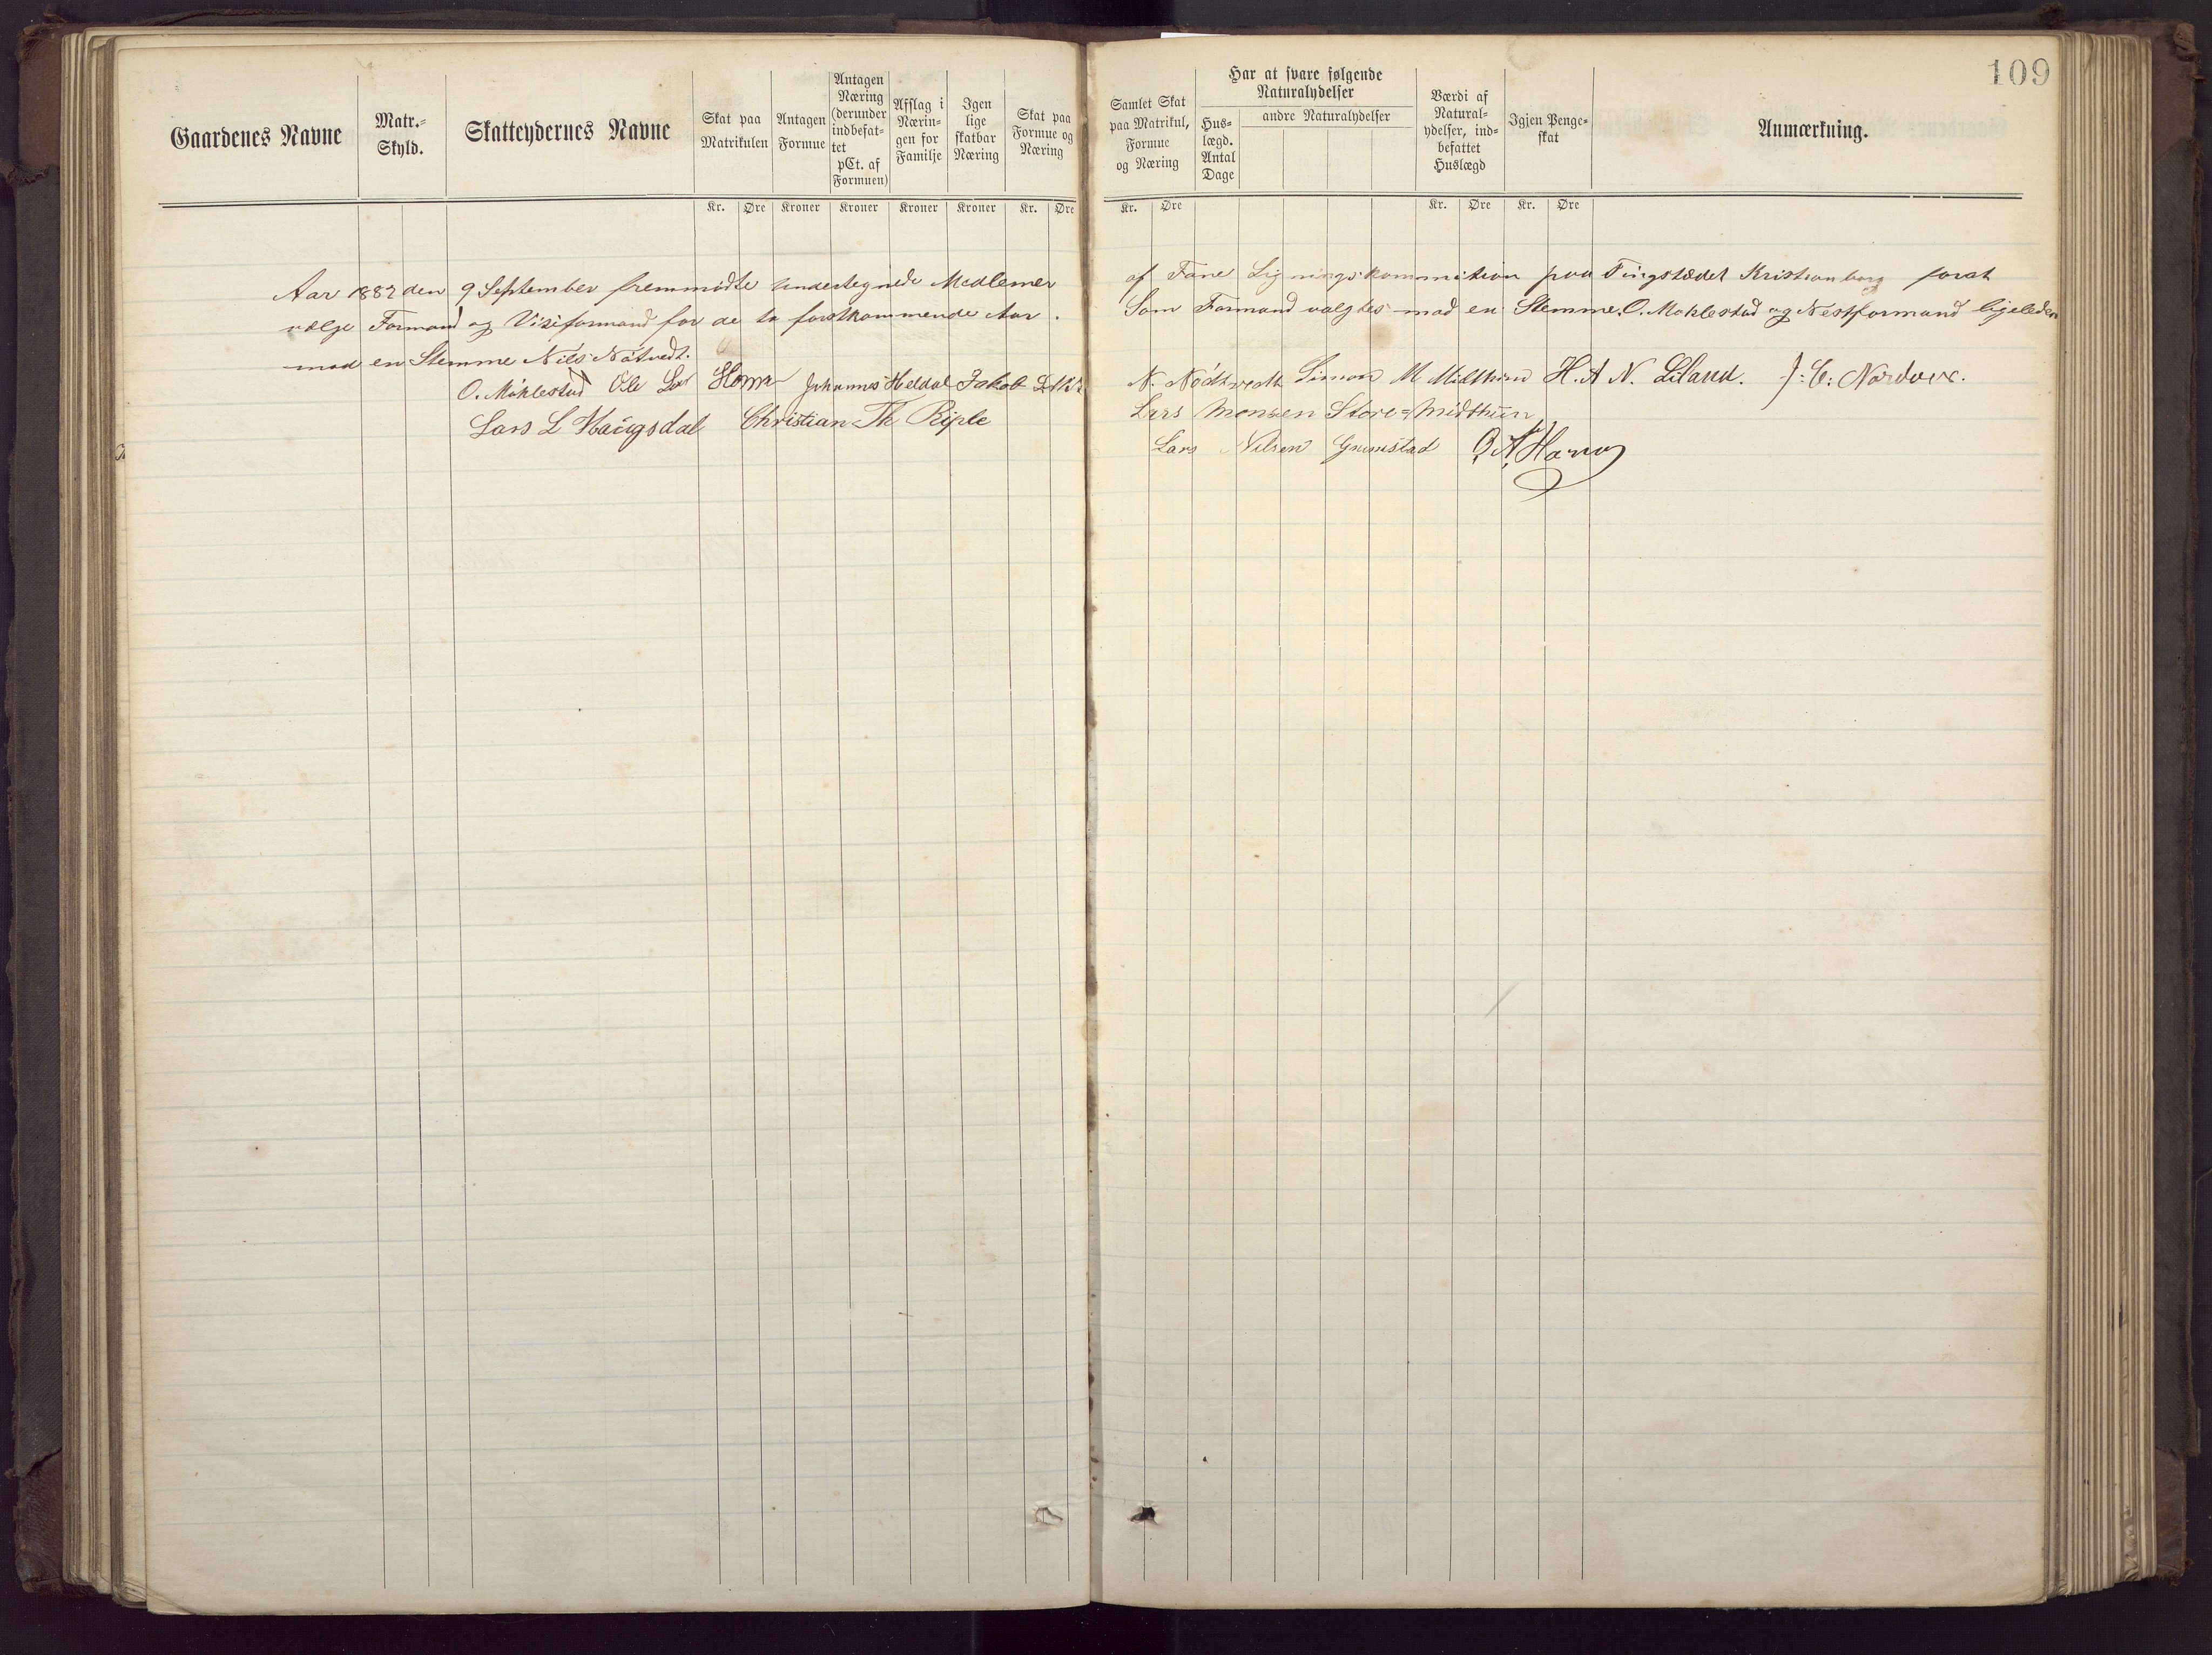 109
Gaardenes Navne
Matr.-
Skyld.
Skatteydernes Navne
Skat paa
Matrikulen
Antagen
Formue
Antagen
Næring
(derunder
indbefat-
tet
pCt. af
Formuen)
Afslag i
Nærin-
gen for
Familje
Igen
lige
skatbar
Næring
Skat paa
Formue og
Næring
Samlet Skat
paa Matrikul,
Formue
og Næring
Har at svare følgende
Naturalydelser
Hus-
lægd.
Antal
Dage
andre Naturalydelser
Værdi af
Natural-
ydelser, ind-
befattet
Huslægd
Igjen Penge-
skat
Anmærkning.
Kr. Øre Kroner Kroner Kroner Kroner Kr. Øre
Kr. Øre Kr. Øre Kr. Øre
Aar 1882 den 9 September fremmødte undertegnede Medlemer af Fane Ligningskommition paa Tingstædet Kristianborg forat
vælge Formand og Viseformand for de to førstkommende Aar. Som Formand valgtes mod en Stemme. O. Mohlestad og Nestformand ligeledes
mod en Stemme Nils Nøtvedt.
O. Møhlestad Ole Hope Johannes Heldal Jakob N. Nødtvedt Simon M Midthun H. A N. Liland. J: C: Nordvik.
Lars L Haugsdal Christian Th Riple Lars Monsen Store-Midthun
Lars Nilsen Grimstad